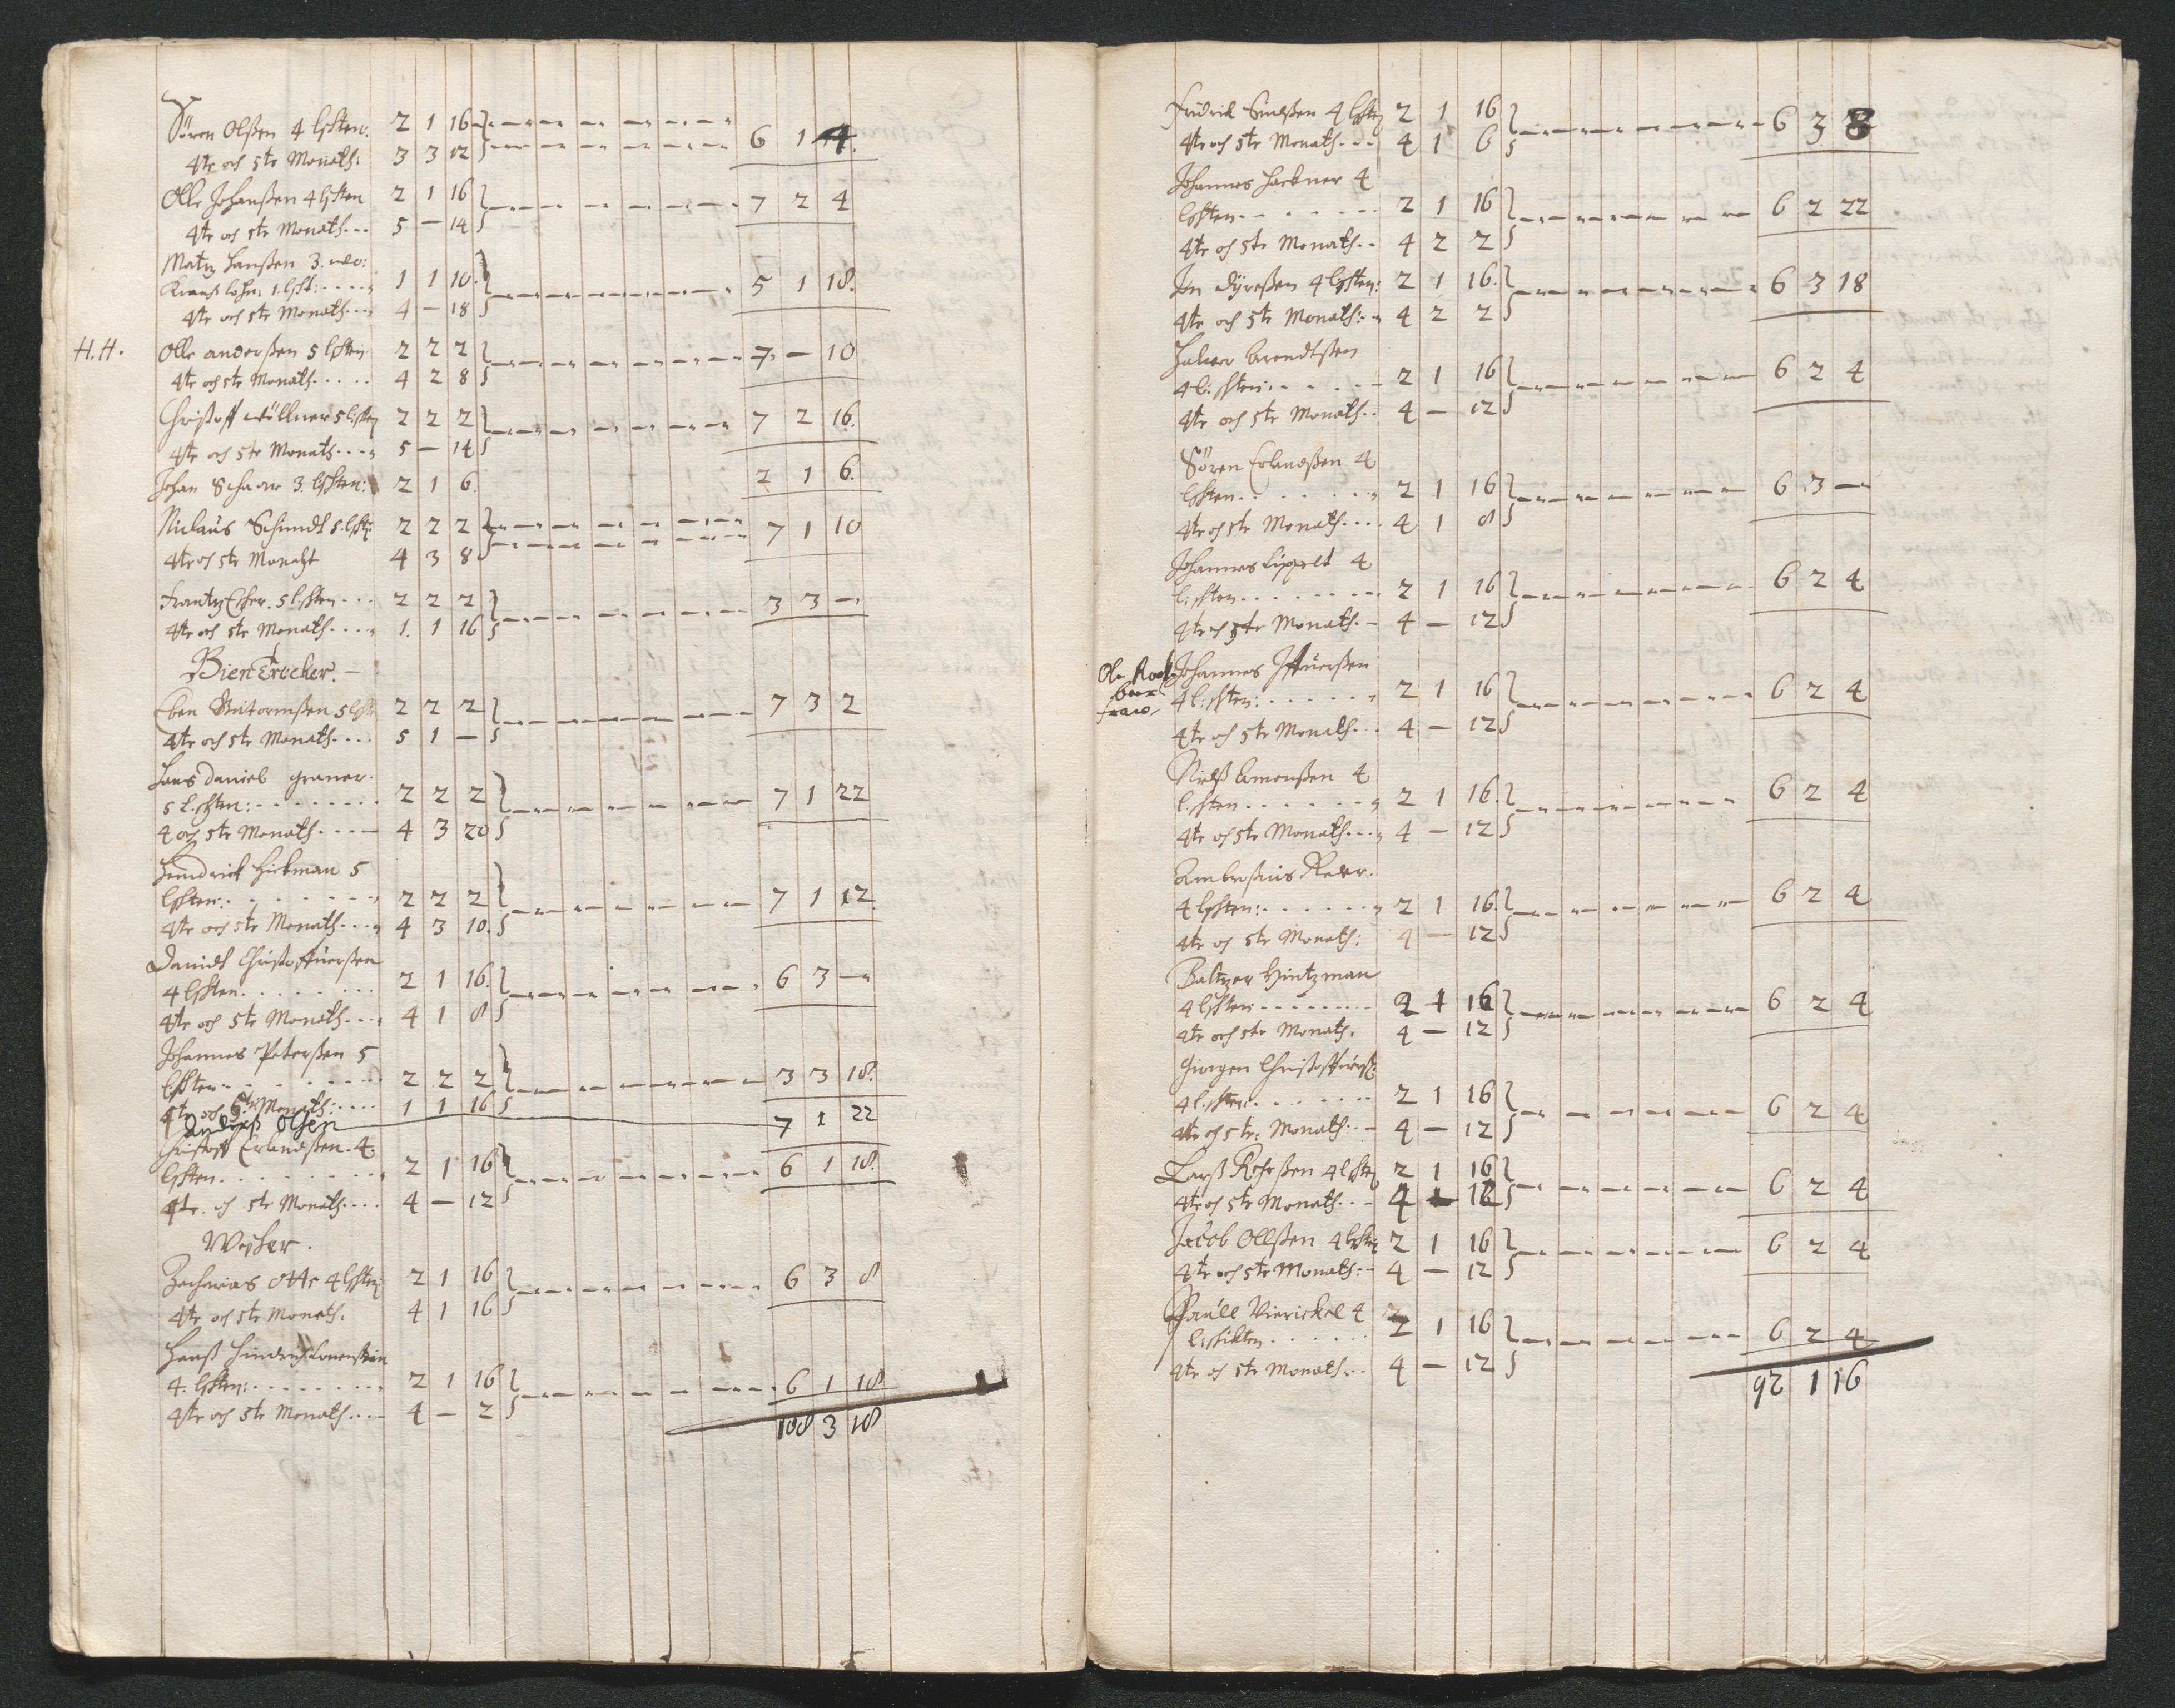 Sören Olßen 4 lSchten: 2 1 16 6 1 4.
4te och 5te Monath: 3 3 12
Olle Johanßen 4 lSchten 2 1 16 7 2 4
4te och 5te Monath 5 — 14
Matz Hanßen 3. wo:
1. lScht: 1 1 10 5 1 18.
4te och 5te Monath 4 — 18
H.H. Olle anderßen 5 lSchten 2 2 2 7 — 10
4te och 5te Monath 4 2 8
Christoff Möllner 5 lSchten 2 2 2 7 2 16.
4te och 5te Monath 5 — 14
Johan Schaar 3. lSchten: 2 1 6 2 1 6.
Niclaus Schmidt 5. lSchten 2 2 2 7 1 10
4te och 5te Monaht 4 3 8
Frantz Eßer. 5 lSchten 2 2 2 3 3 —
4te och 5te Monath 1. 1 16
Eben 5 lSchten 2 2 2 7 3 2
4te och 5te Monath 5 1 —
Hans Daniel graner.
5 l.Schten: 2 2 2 7 1 22
4 och 5te Monath 4 3 20
Hindrich Hickman 5
lSchten: 2 2 2 7 1 12.
4te och 5te Monath 4 3 10.
Daniel Christoffuerßen
4 lSchten 2 1 16. 6 3 —
4te och 5te Monath 4 1 8
Johannes Peterßen 5
lSchten 2 2 2 3 3 18.
4te och 5te Monath: 1 1 16
Anderß Olsen 7 1 22
Christoff Erlandßen. 4
lSchten 2 1 16 6 1 18.
4te. och 5te Monath 4 — 12
Wescher.
Zacharias Otte 4 lSchten 2 1 16 6 3 8
4te och 5te Monath. 4 1 16
Hanß Hindrich
4. lSchten: 2 1 16 6 1 18
4te och 5te Monath 4 — 2
108 3 18
Fridrich 4 lSchten 2 1 16 6 3 8
4te och 5te Monath 4 1 6
Johannes Hackner 4
lSchten 2 1 16 6 2 22
4te och 5te Monath 4 2 2
Jon Dÿreßen 4 lSchten: 2 1 16. 6 3 18
4te och 5te Monath: 4 2 2
Halvor Arendtßen
4 l:Schten: 2 1 16 6 2 4
4te och 5te Monath 4 — 12
Sören Erlandßen 4
lSchten 2 1 16 6 3 —
4te och 5te Monath 4 1 8
Johannes Lippelt 4
l:Schten 2 1 16 6 2 4
4te och 5te Monath. 4 — 12
Johannes
4 l:Schten: 2 1 16 6 2 4
4te och 5te Monath 4 — 12
Nielß Amonßen 4
l:Schten 2 1 16. 6 2 4
4te och 5te Monath 4 — 12
Ambrosius Rewr.
4 lSchten: 2 1 16. 6 2 4
4te och 5te Monath: 4 — 12
Baltzer Hintzman
4 lSchten: 2 1 16 6 2 4
4te och 5te Monath. 4 — 12
Giorgen Christofferß:
4 l:Schten: 2 1 16 6 2 4
4te och 5te: Monath: 4 — 12
Larß 4 lSchten 2 1 16 6 2 4
4te och 5te Monath 4 — 12
Jacob Ollßen 4 lSchten 2 1 16 6 2 4
4te och 5te Monath: 4 — 12
Paull Vierickel 4
l:Schten 2 1 16 6 2 4
4te och 5te Monath 4 — 12
92 1 16